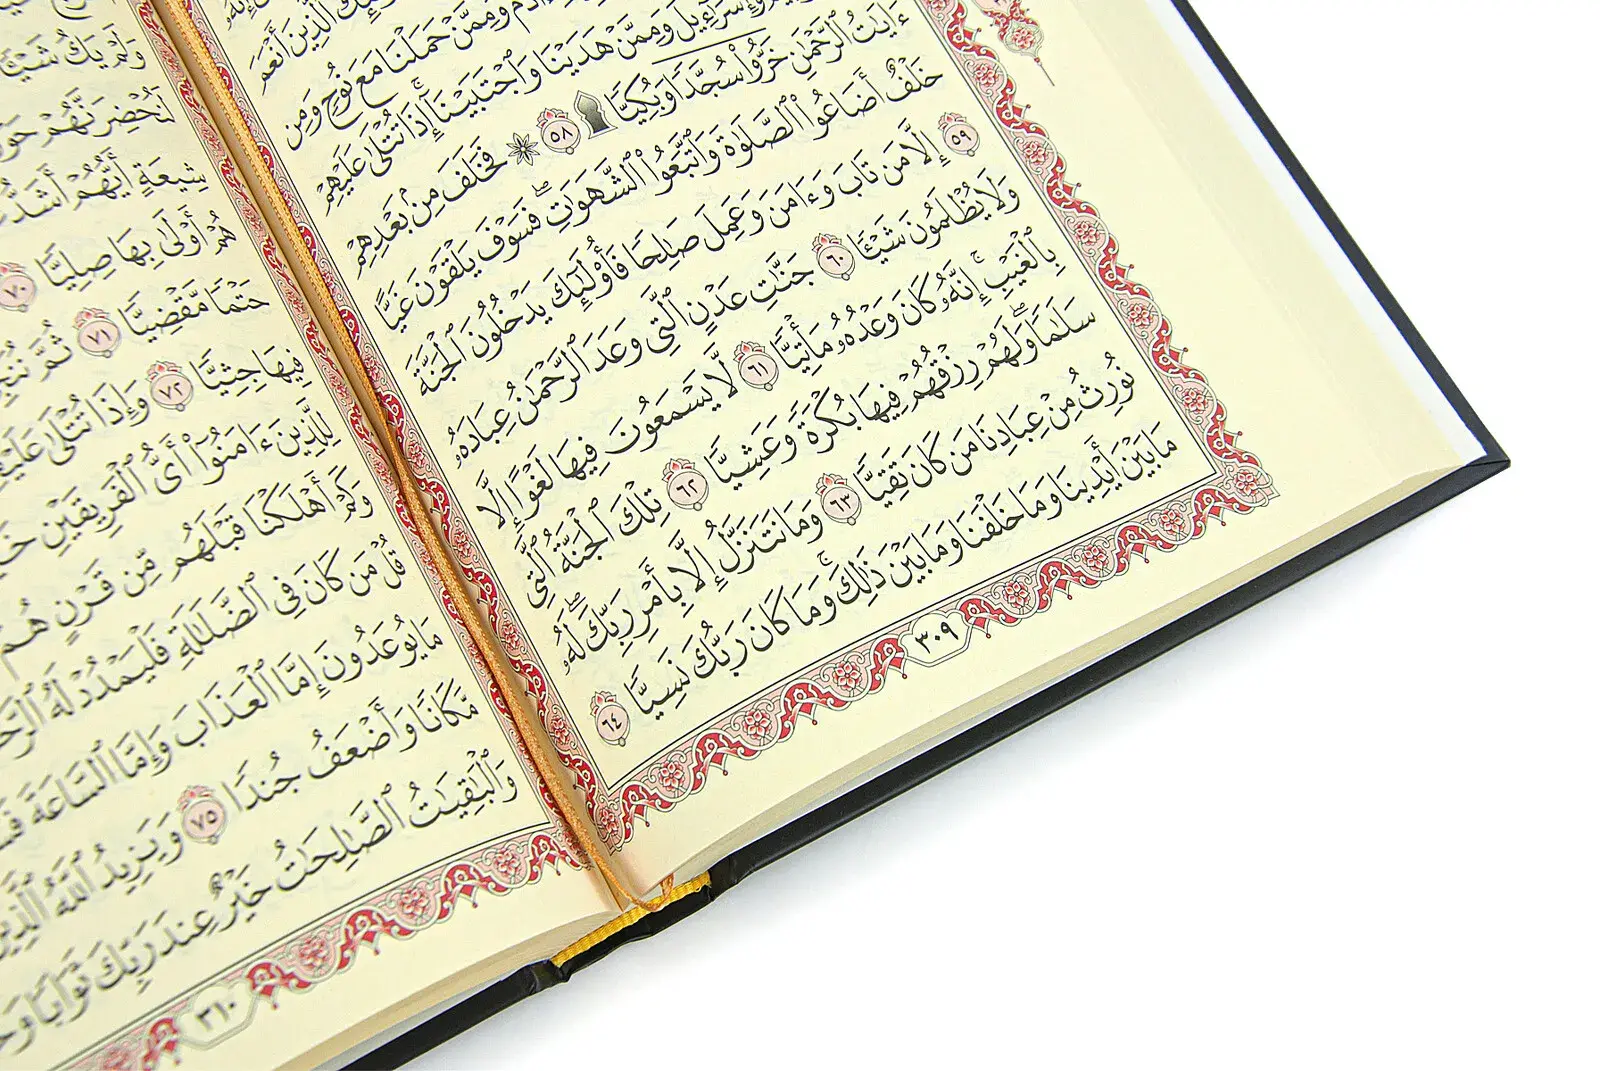 ٱلَّذِينَ أَنْعَمَ
وَمِمَّنْ حَمَلْنَا مَعَ نُوحٍ وَمِن
وَإِسْرَٰٓءِيلَ وَمِمَّنْ هَدَيْنَا وَٱجْتَبَيْنَآ إِذَا تُتْلَىٰ عَلَيْهِمْ
ءَايَٰتُ ٱلرَّحْمَٰنِ خَرُّوا۟ سُجَّدًا وَبُكِيًّا ۩ ٥٨ ۞ فَخَلَفَ مِنۢ بَعْدِهِمْ
خَلْفٌ أَضَاعُوا۟ ٱلصَّلَوٰةَ وَٱتَّبَعُوا۟ ٱلشَّهَوَٰتِ ۖ فَسَوْفَ يَلْقَوْنَ غَيًّا
٥٩ إِلَّا مَن تَابَ وَءَامَنَ وَعَمِلَ صَٰلِحًا فَأُو۟لَٰٓئِكَ يَدْخُلُونَ ٱلْجَنَّةَ
وَلَا يُظْلَمُونَ شَيْـًٔا ٦٠ جَنَّٰتِ عَدْنٍ ٱلَّتِى وَعَدَ ٱلرَّحْمَٰنُ عِبَادَهُۥ
بِٱلْغَيْبِ ۚ إِنَّهُۥ كَانَ وَعْدُهُۥ مَأْتِيًّا ٦١ لَّا يَسْمَعُونَ فِيهَا لَغْوًا إِلَّا
سَلَٰمًا ۖ وَلَهُمْ رِزْقُهُمْ فِيهَا بُكْرَةً وَعَشِيًّا ٦٢ تِلْكَ ٱلْجَنَّةُ ٱلَّتِى
نُورِثُ مِنْ عِبَادِنَا مَن كَانَ تَقِيًّا ٦٣ وَمَا نَتَنَزَّلُ إِلَّا بِأَمْرِ رَبِّكَ ۖ لَهُۥ
مَا بَيْنَ أَيْدِينَا وَمَا خَلْفَنَا وَمَا بَيْنَ ذَٰلِكَ ۚ وَمَا كَانَ رَبُّكَ نَسِيًّا ٦٤
٣٠٩
وَلَمْ يَكُ شَيْـًٔا
لَنُحْضِرَنَّهُمْ
شِيعَةٍ أَيُّهُمْ أَشَدُّ
هُمْ أَوْلَىٰ بِهَا صِلِيًّا ٧٠
حَتْمًا مَّقْضِيًّا ٧١ ثُمَّ
فِيهَا جِثِيًّا ٧٢ وَإِذَا تُتْلَىٰ
لِلَّذِينَ ءَامَنُوٓا۟ أَىُّ ٱلْفَرِيقَيْنِ
وَكَمْ أَهْلَكْنَا قَبْلَهُم مِّن قَرْنٍ هُمْ
قُلْ مَن كَانَ فِى ٱلضَّلَٰلَةِ فَلْيَمْدُدْ لَهُ
مَا يُوعَدُونَ إِمَّا ٱلْعَذَابَ وَإِمَّا ٱلسَّاعَةَ
مَّكَانًا وَأَضْعَفُ جُندًا ٧٥ وَيَزِيدُ ٱللَّهُ
وَٱلْبَٰقِيَٰتُ ٱلصَّٰلِحَٰتُ خَيْرٌ عِندَ رَبِّكَ ثَوَابًا
٣١٠